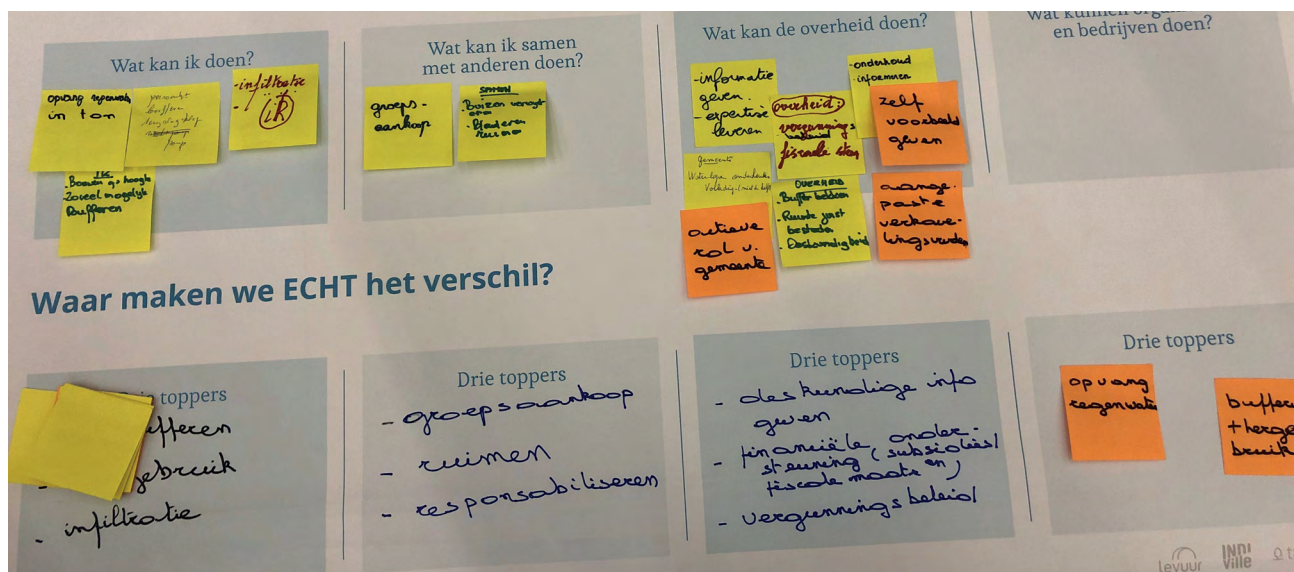 Wat kan ik doen?
opvang regenwater
in ton
buffere
- infiltratie
- ik
IK
- Bomen op hoogte
- Zoveel mogelijk
Bufferen
Wat kan ik samen
met anderen doen?
groeps-
aankoop
SAMEN
- Bladeren
ruimen
Wat kan de overheid doen?
- informatie
geven.
- expertise
leveren
overheid:
vergunnings
beleid
fiscale stap
- onderhoud
- informeren
zelf
voorbeeld
geven
Gemeente
Waterlopen onderhouden
OVERHEID
- Buffer bekken
- Ruimte juist
besteden
- Deskundigheid
aange-
paste
verkave-
lings
actieve
rol v.
gemeente
Wat kunnen
en bedrijven doen?
Waar maken we ECHT het verschil?
toppers
fferen
gebruik
- infiltratie
Drie toppers
- groepsaankoop
- ruimen
- responsabiliseren
Drie toppers
- deskundige info
geven
- financiële onder-
steuning (subsidies/
fiscale maatr en)
- vergunningsbeleid
Drie toppers
opvang
regenwater
buffere
+ herge
bruik
levuur
INDI
Ville